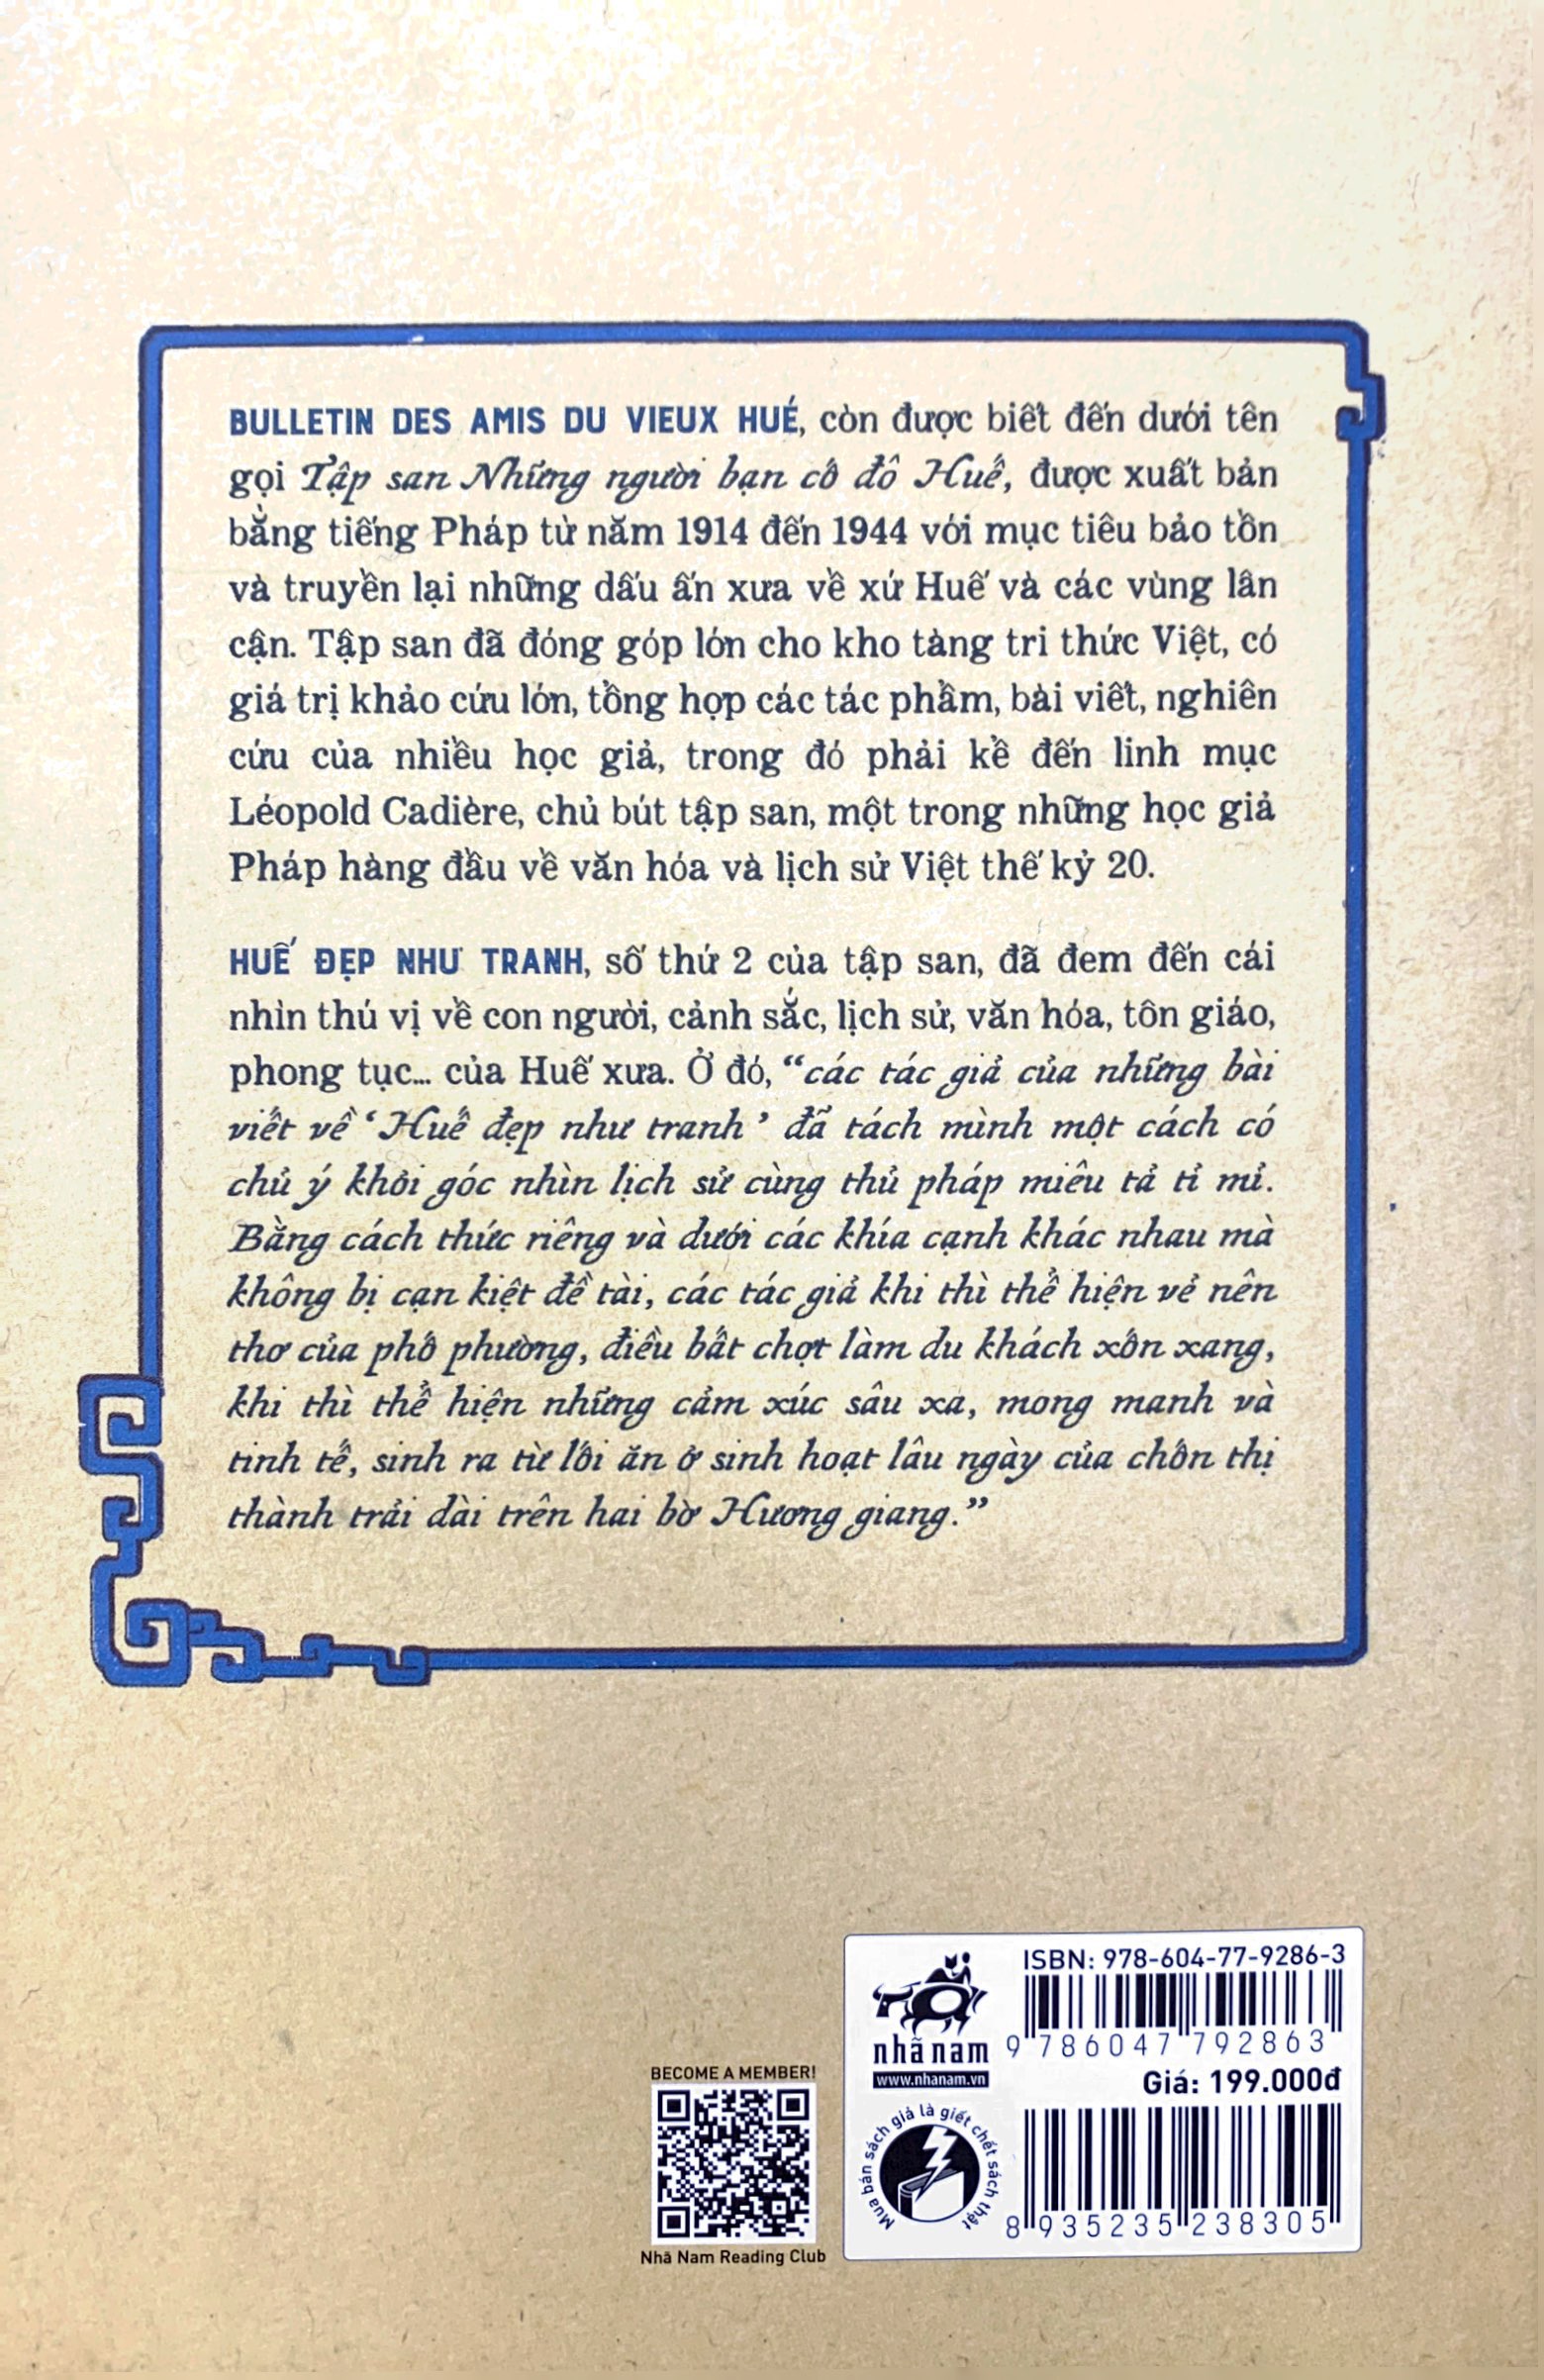 BULLETIN DES AMIS DU VIEUX HUÉ, còn được biết đến dưới tên
gọi Tập san Những người bạn cố đô Huế, được xuất bản
bằng tiếng Pháp từ năm 1914 đến 1944 với mục tiêu bảo tồn
và truyền lại những dấu ấn xưa về xứ Huế và các vùng lân
cận. Tập san đã đóng góp lớn cho kho tàng tri thức Việt, có
giá trị khảo cứu lớn, tổng hợp các tác phẩm, bài viết, nghiên
cứu của nhiều học giả, trong đó phải kể đến linh mục
Léopold Cadière, chủ bút tập san, một trong những học giả
Pháp hàng đầu về văn hóa và lịch sử Việt thế kỷ 20.
HUẾ ĐẸP NHƯ TRANH, số thứ 2 của tập san, đã đem đến cái
nhìn thú vị về con người, cảnh sắc, lịch sử, văn hóa, tôn giáo,
phong tục... của Huế xưa. Ở đó, “các tác giả của những bài
viết về ‘Huế đẹp như tranh’ đã tách mình một cách có
chủ ý khỏi góc nhìn lịch sử cùng thủ pháp miêu tả tỉ mỉ.
Bằng cách thức riêng và dưới các khía cạnh khác nhau mà
không bị cạn kiệt đề tài, các tác giả khi thì thể hiện vẻ nên
thơ của phố phường, điều bất chợt làm du khách xốn xang,
khi thì thể hiện những cảm xúc sâu xa, mong manh và
tinh tế, sinh ra từ lối ăn ở sinh hoạt lâu ngày của chốn thị
thành trải dài trên hai bờ Hương giang.”
ISBN: 978-604-77-9286-3
nhã nam
www.nhanam.vn
9 786047 792863
Giá: 199.000đ
BECOME A MEMBER!
Mua bán sách giả là giết chết sách thật
8 935235 238305
Nhã Nam Reading Club